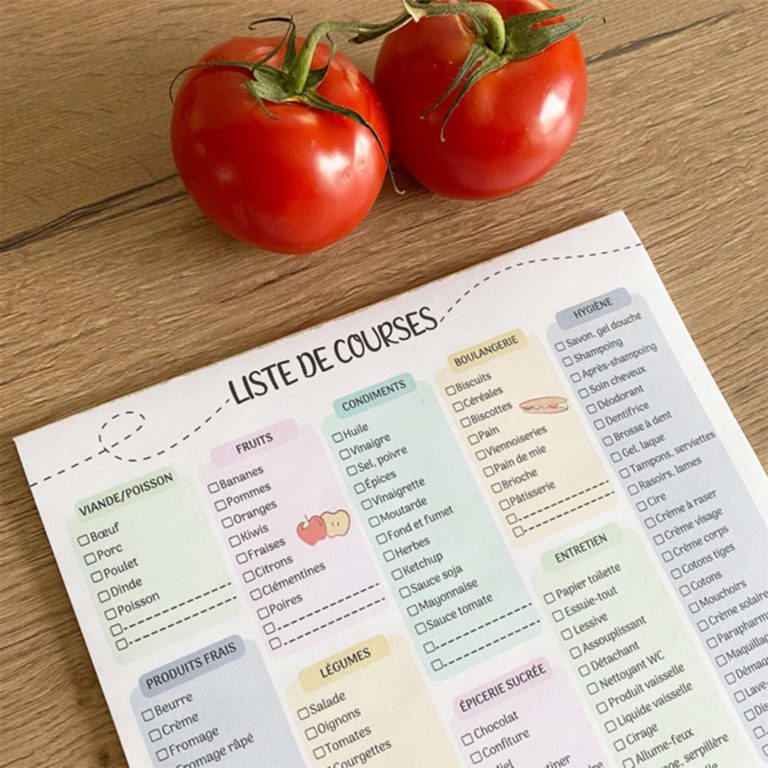 LISTE DE COURSES
VIANDE/POISSON
Bœuf
Porc
Poulet
Dinde
Poisson
FRUITS
Bananes
Pommes
Oranges
Kiwis
Fraises
Citrons
Clémentines
Poires
CONDIMENTS
Huile
Vinaigre
Sel, poivre
Épices
Vinaigrette
Moutarde
Fond et fumet
Herbes
Ketchup
Sauce soja
Mayonnaise
Sauce tomate
BOULANGERIE
Biscuits
Céréales
Biscottes
Pain
Viennoiseries
Pain de mie
Brioche
Pâtisserie
HYGIÈNE
Savon, gel douche
Shampoing
Après-shampoing
Soin cheveux
Déodorant
Dentifrice
Brosse à dent
Gel, laque
Tampons, serviettes
Rasoirs, lames
Cire
Crème à raser
Crème visage
Crème corps
Cotons tiges
Cotons
Mouchoirs
Crème solaire
PRODUITS FRAIS
Beurre
Crème
Fromage
Fromage râpé
LÉGUMES
Salade
Oignons
Tomates
Courgettes
ÉPICERIE SUCRÉE
Chocolat
Confiture
ENTRETIEN
Papier toilette
Essuie-tout
Lessive
Assouplissant
Détachant
Nettoyant WC
Produit vaisselle
Liquide vaisselle
Cirage
Allume-feux